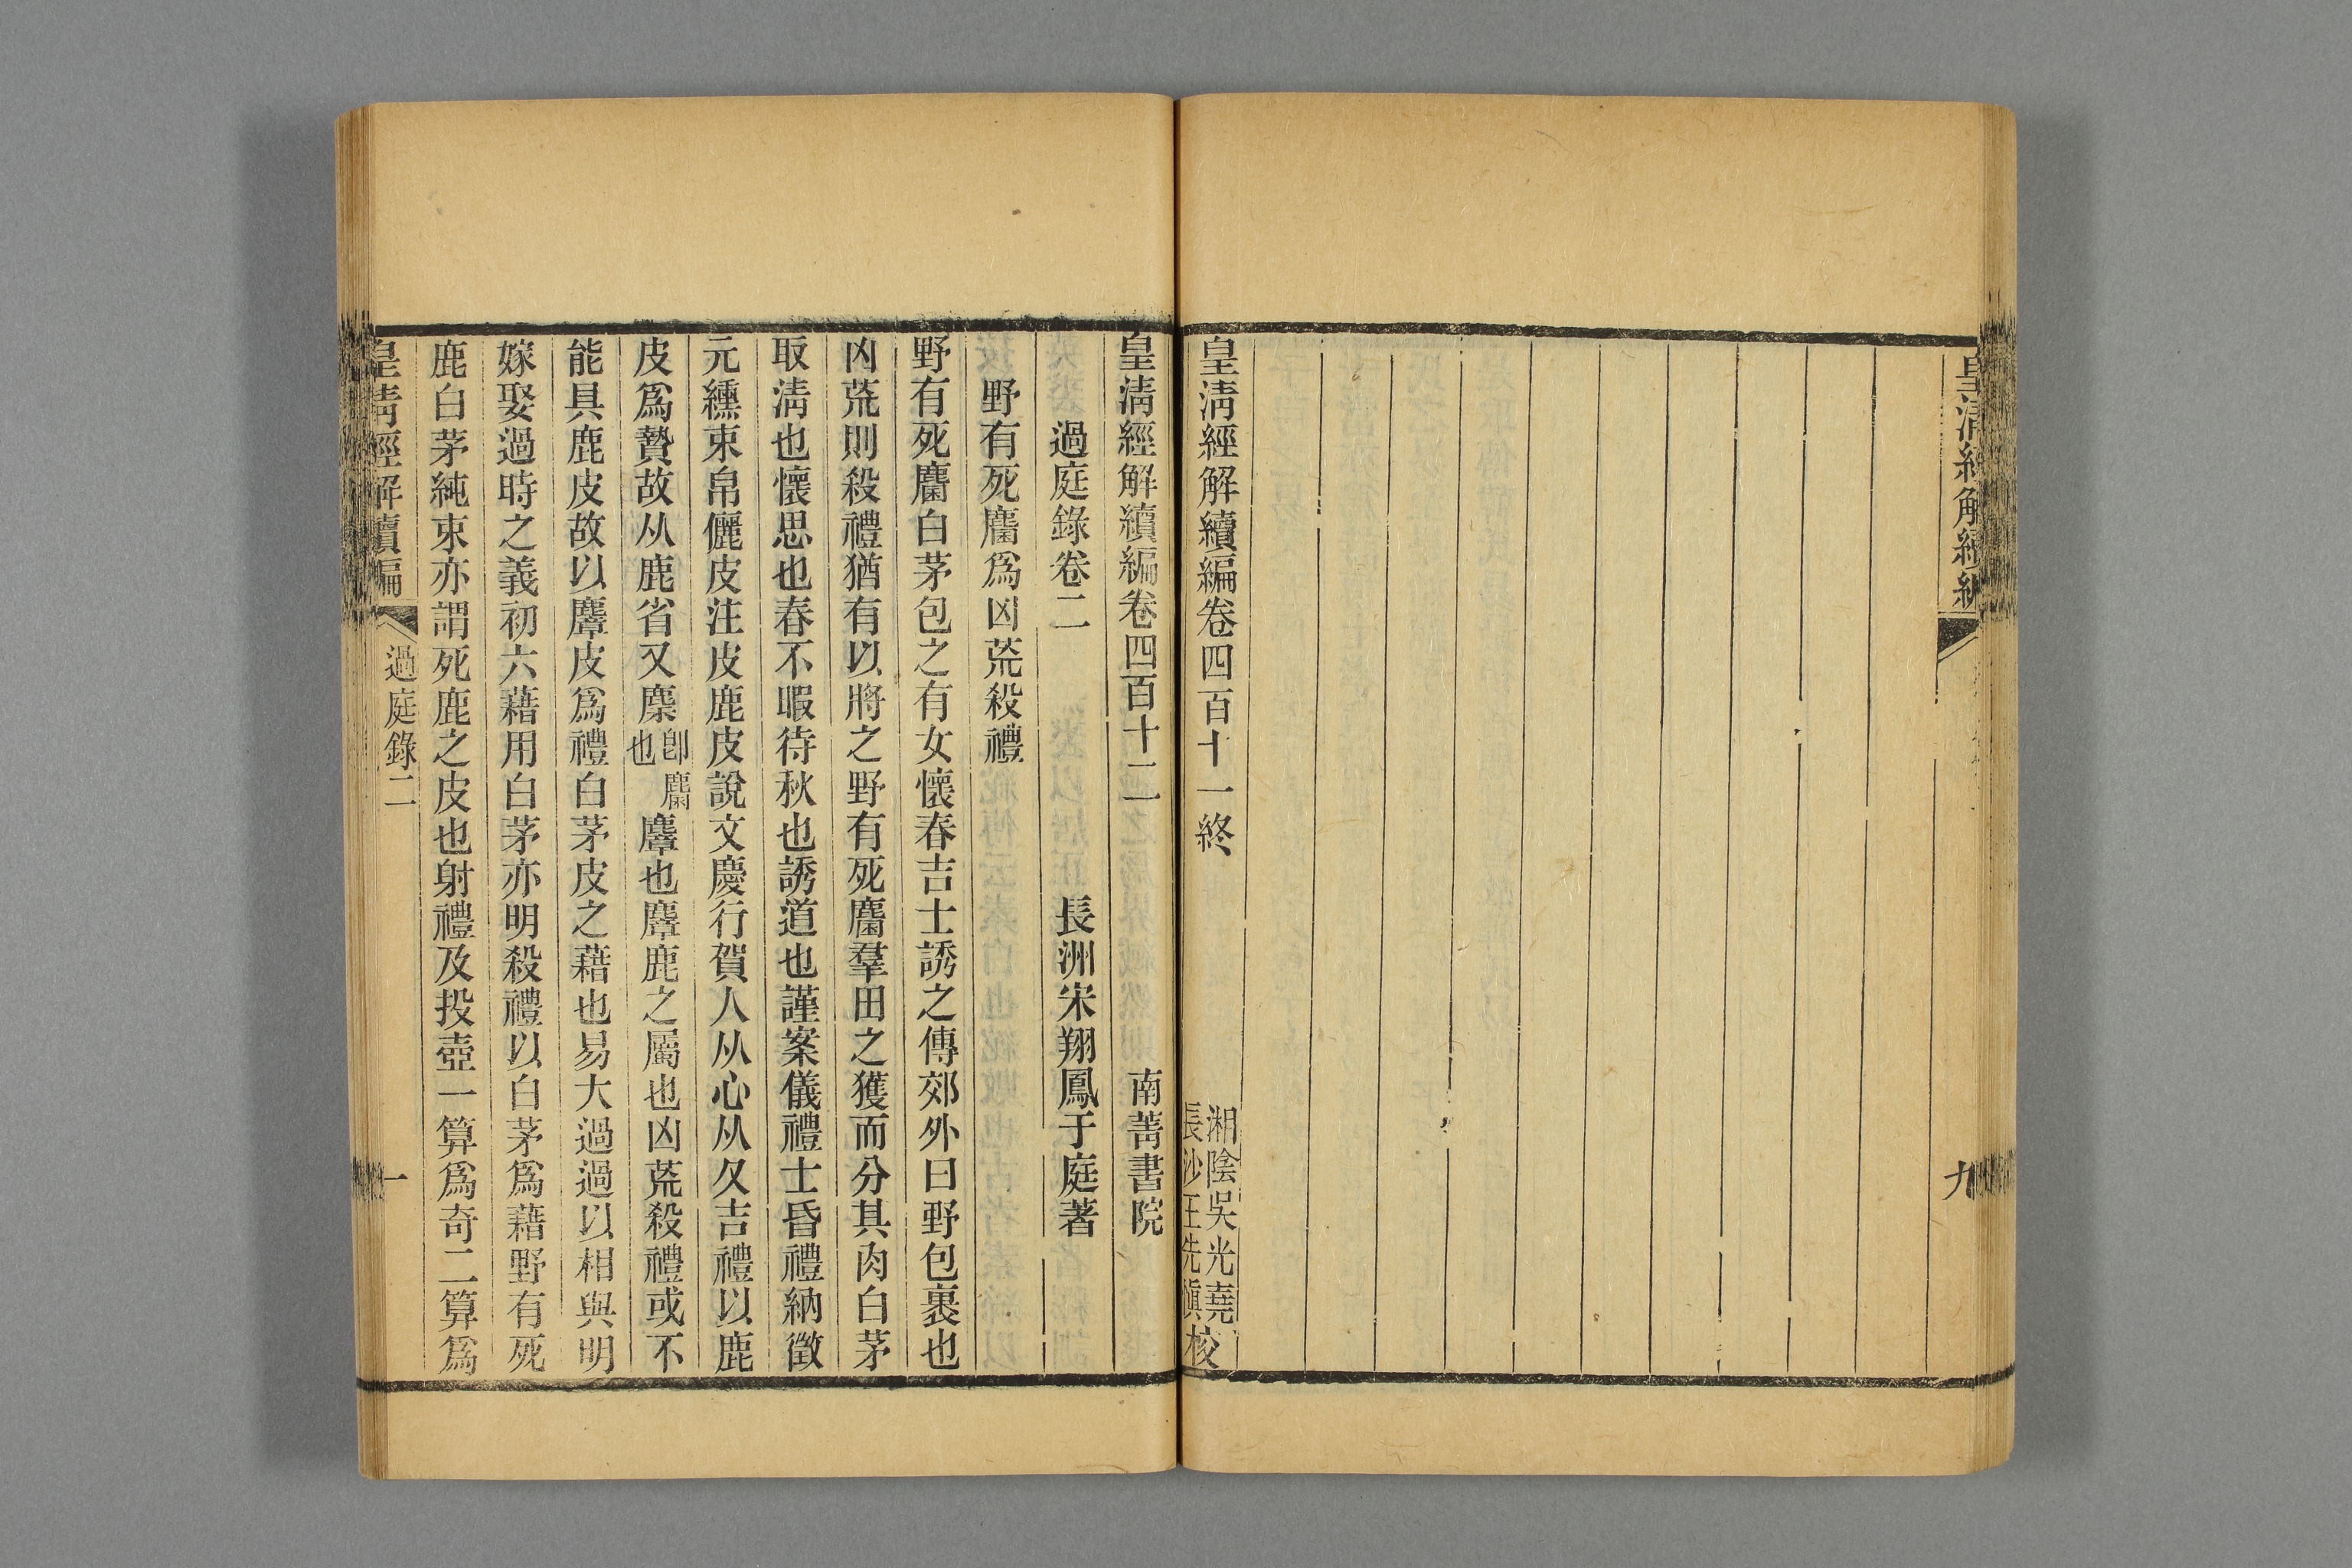 皇清經解續編
九
皇清經解續編卷四百十一終
湘陰吳光堯
長沙王先愼校
皇清經解續編卷四百十二
南菁書院
過庭錄卷二
長洲宋翔鳳于庭著
野有死麕爲凶荒殺禮
野有死麕白茅包之有女懷春吉士誘之傳郊外曰野包裹也
凶荒則殺禮猶有以將之野有死麕羣田之獲而分其肉白茅
取淸也懷思也春不暇待秋也誘道也謹案儀禮士昏禮納徵
元纁束帛儷皮注皮鹿皮說文慶行賀人从心从夊吉禮以鹿
皮爲贄故从鹿省又麇卽麕也麞也麞鹿之屬也凶荒殺禮或不
能具鹿皮故以麞皮爲禮白茅皮之藉也易大過過以相與明
嫁娶過時之義初六藉用白茅亦明殺禮以白茅爲藉野有死
鹿白茅純束亦謂死鹿之皮也射禮及投壺一算爲奇二算爲
皇清經解續編
過庭錄二
一